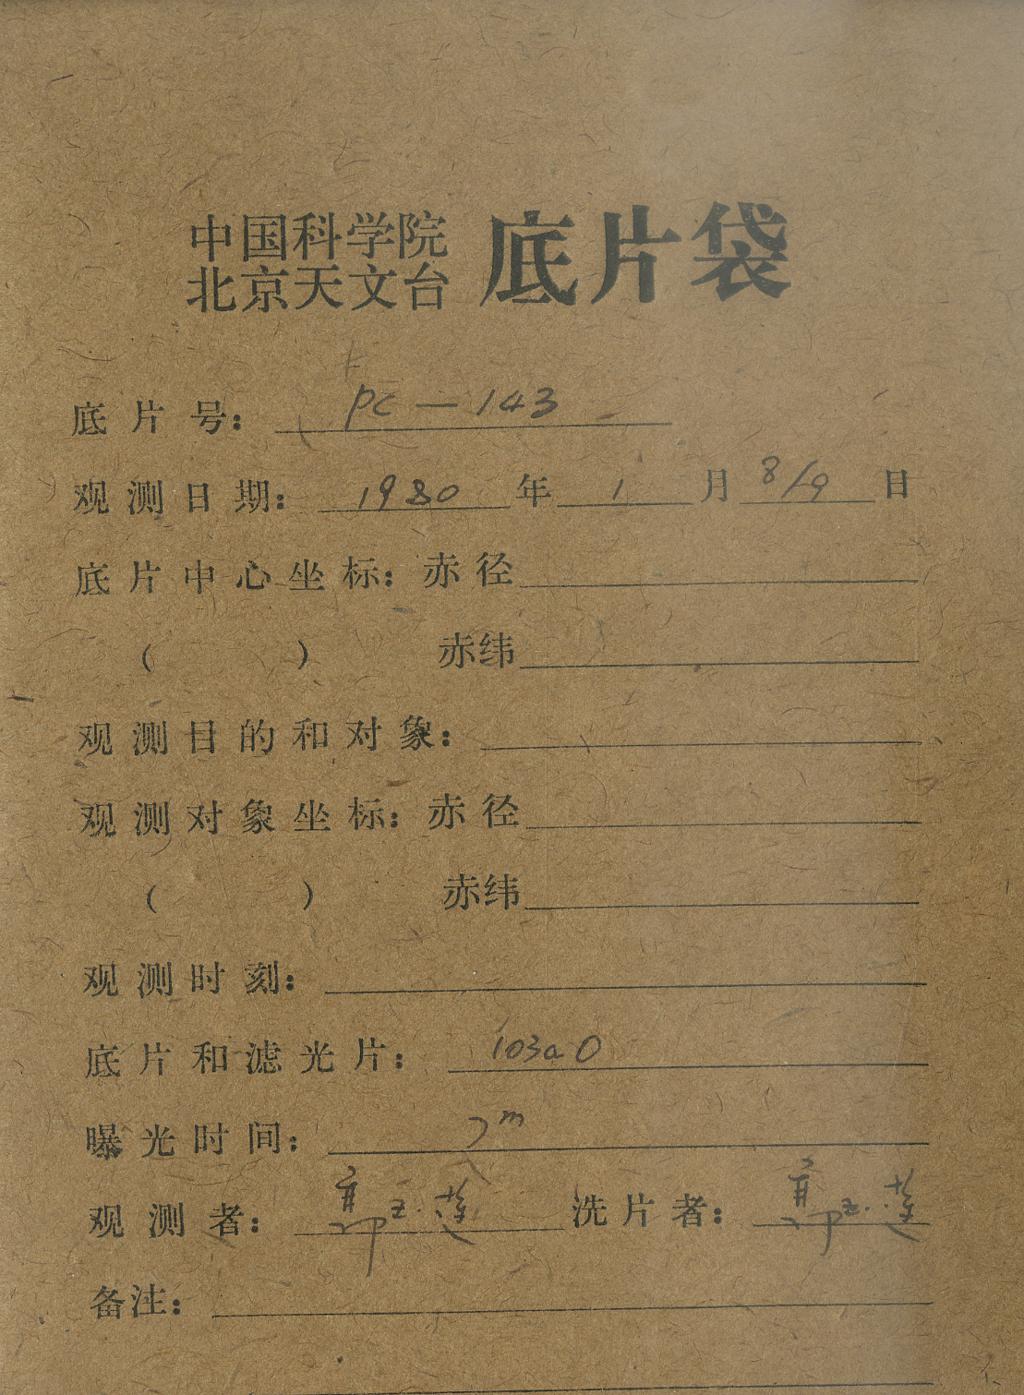 中国科学院
北京天文台 底片袋
底片号： pc — 143
观测日期： 1980 年 1 月 8/9 日
底片中心坐标：赤径
（ ） 赤纬
观测目的和对象：
观测对象坐标：赤径
（ ） 赤纬
观测时刻：
底片和滤光片： 103aO
曝光时间： 7m
观测者： 洗片者：
备注：